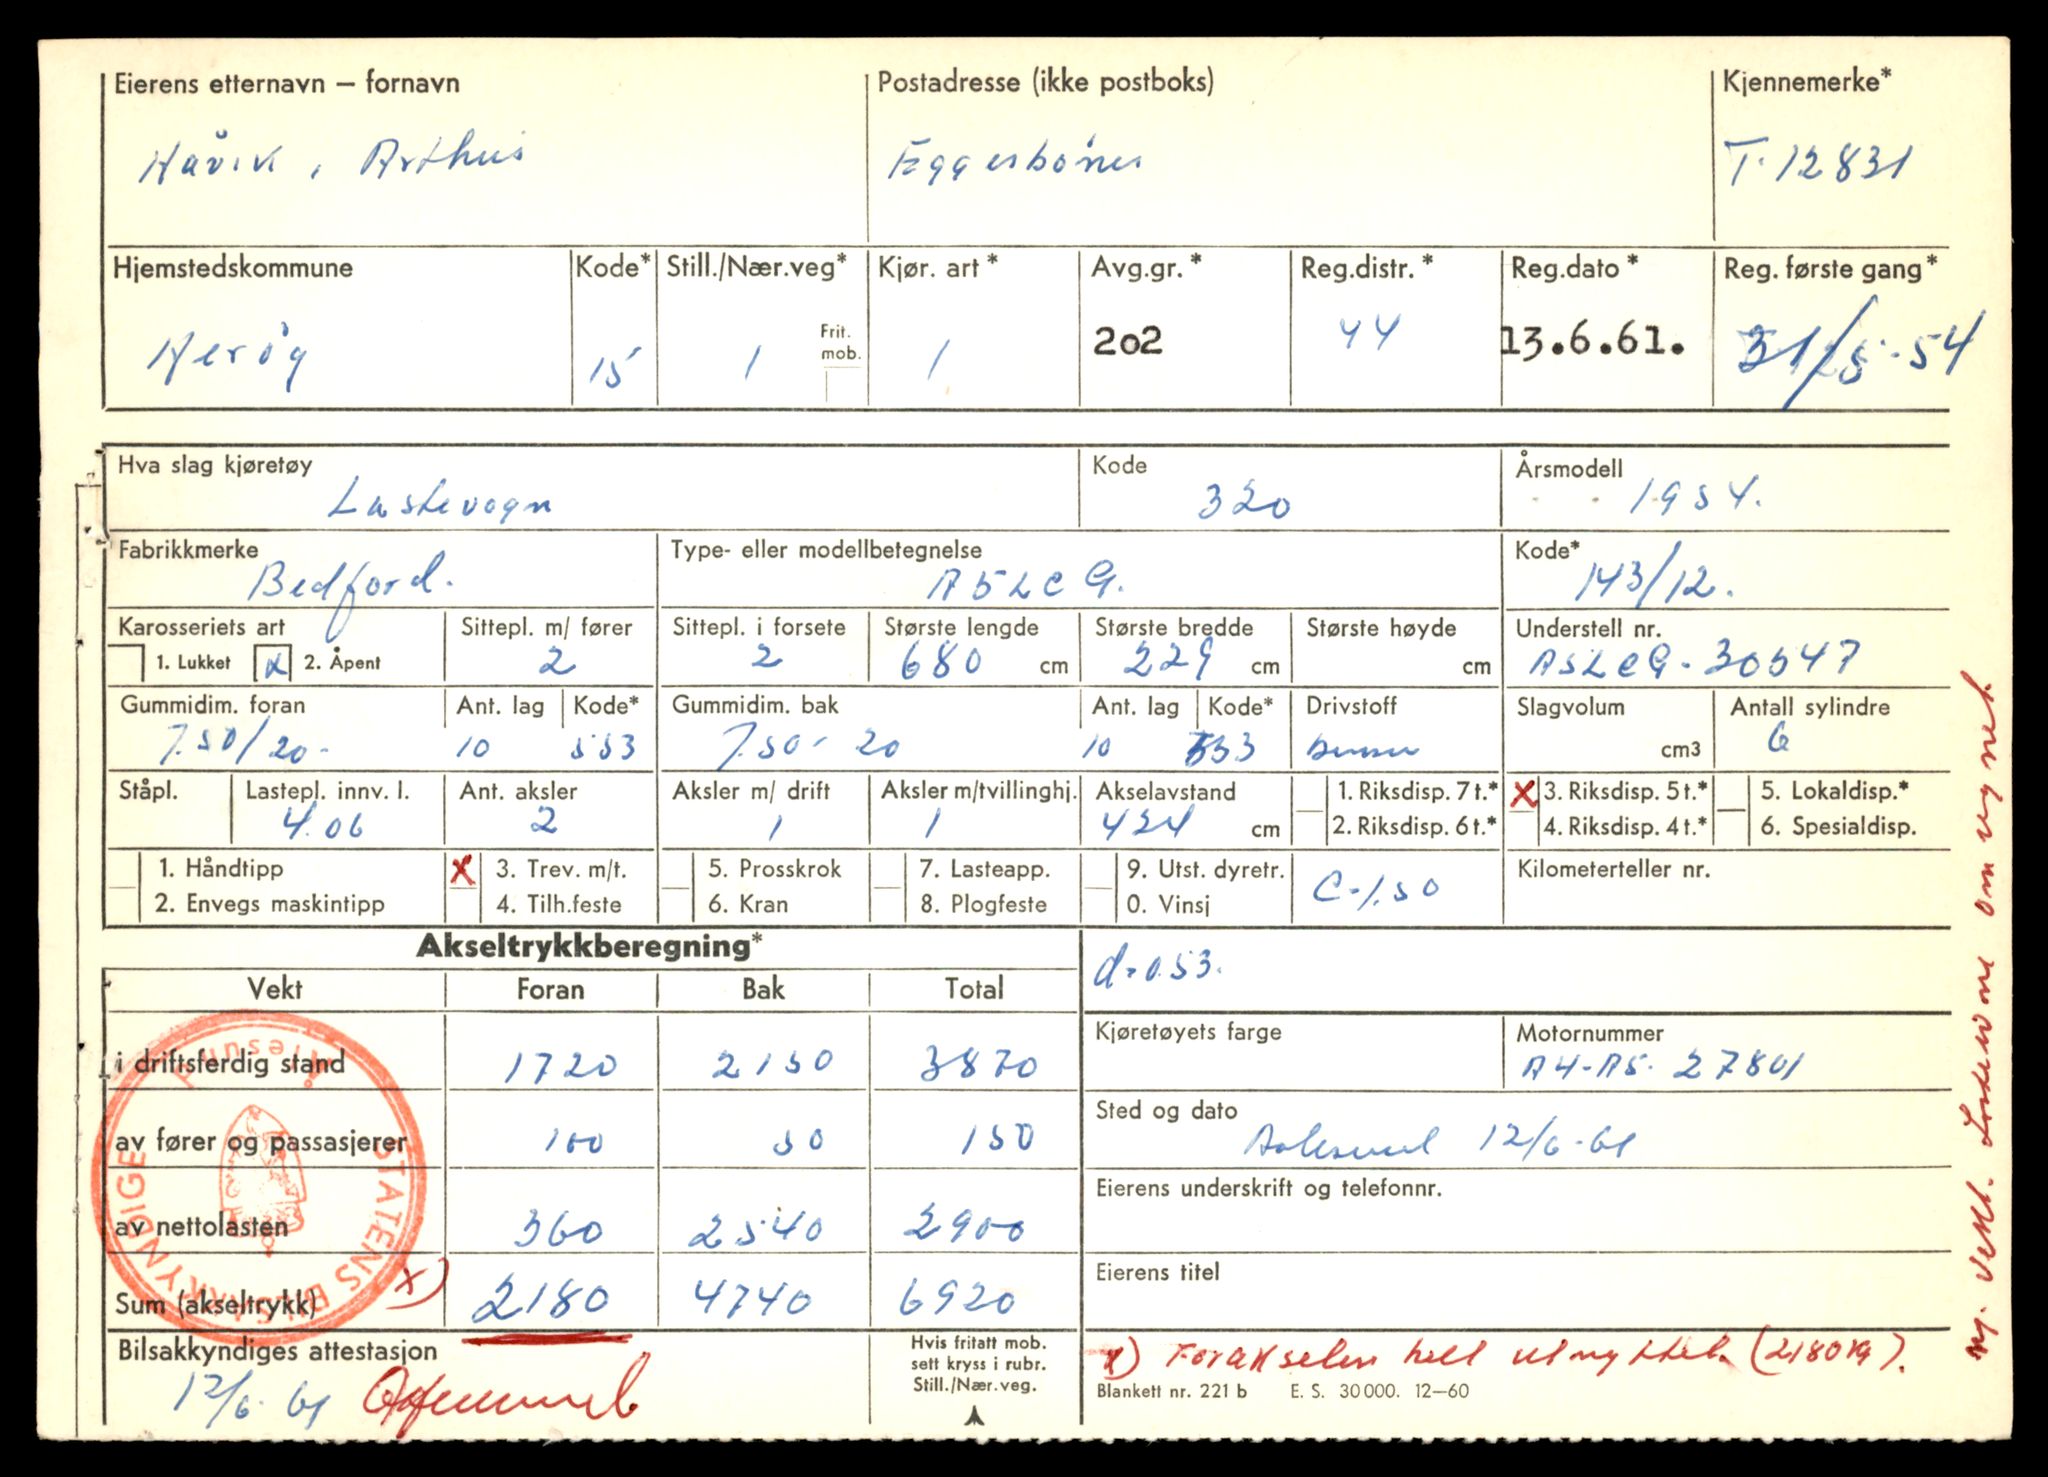 Eierens etternavn — fornavn Postadresse (ikke postboks) Kjennemerke*
Håvik, Arthur Eggesbønes T-12831
Hjemstedskommune Kode* Still./Nær.veg* Kjør. art* Avg.gr.* Reg.distr.* Reg.dato* Reg. første gang*
Herøy 15 1 Frit. mob. 1 202 44 13.6.61. 31/5-54
Hva slag kjøretøy Kode Årsmodell
Lastevogn 320 1954.
Fabrikkmerke Type- eller modellbetegnelse Kode*
Bedford. A5LCG. 143/12.
Karosseriets art Sittepl. m/ fører Sittepl. i forsete Største lengde Største bredde Største høyde Understell nr.
1. Lukket x 2. Åpent 2 2 680 cm 229 cm cm A5LCG-30547
Gummidim. foran Ant. lag Kode* Gummidim. bak Ant. lag Kode* Drivstoff Slagvolum Antall sylindre
7.50/20- 10 553 7.50-20 10 553 cm3 6
Ståpl. Lastepl. innv. l. Ant. aksler Aksler m/ drift Aksler m/tvillinghj. Akselavstand 1. Riksdisp. 7 t.* X 3. Riksdisp. 5 t.* 5. Lokaldisp.*
4.06 2 1 1 424 cm 2. Riksdisp. 6 t.* 4. Riksdisp. 4 t.* 6. Spesialdisp.
1. Håndtipp X 3. Trev. m/t. 5. Prosskrok 7. Lasteapp. 9. Utst. dyretr. C-1.50 Kilometerteller nr.
2. Envegs maskintipp 4. Tilh.feste 6. Kran 8. Plogfeste 0. Vinsj
Akseltrykkberegning*
d-0.53.
Vekt Foran Bak Total
Kjøretøyets farge Motornummer
i driftsferdig stand 1720 2150 3870
A4-A5-27801
Sted og dato
av fører og passasjerer 100 50 150
Aalesund 12/6-61
Eierens underskrift og telefonnr.
av nettolasten 360 2540 2900
Eierens titel
Sum (akseltrykk) x) 2180 4740 6920
STATENS BILSAKKYNDIGE Ålesund
Bilsakkyndiges attestasjon Hvis fritatt mob. sett kryss i rubr. Still./Nær.veg.
12/6-61
x) Forakselen helt utnyttet. (2180 kg).
Blankett nr. 221 b E. S. 30 000. 12—60
om veg nett.